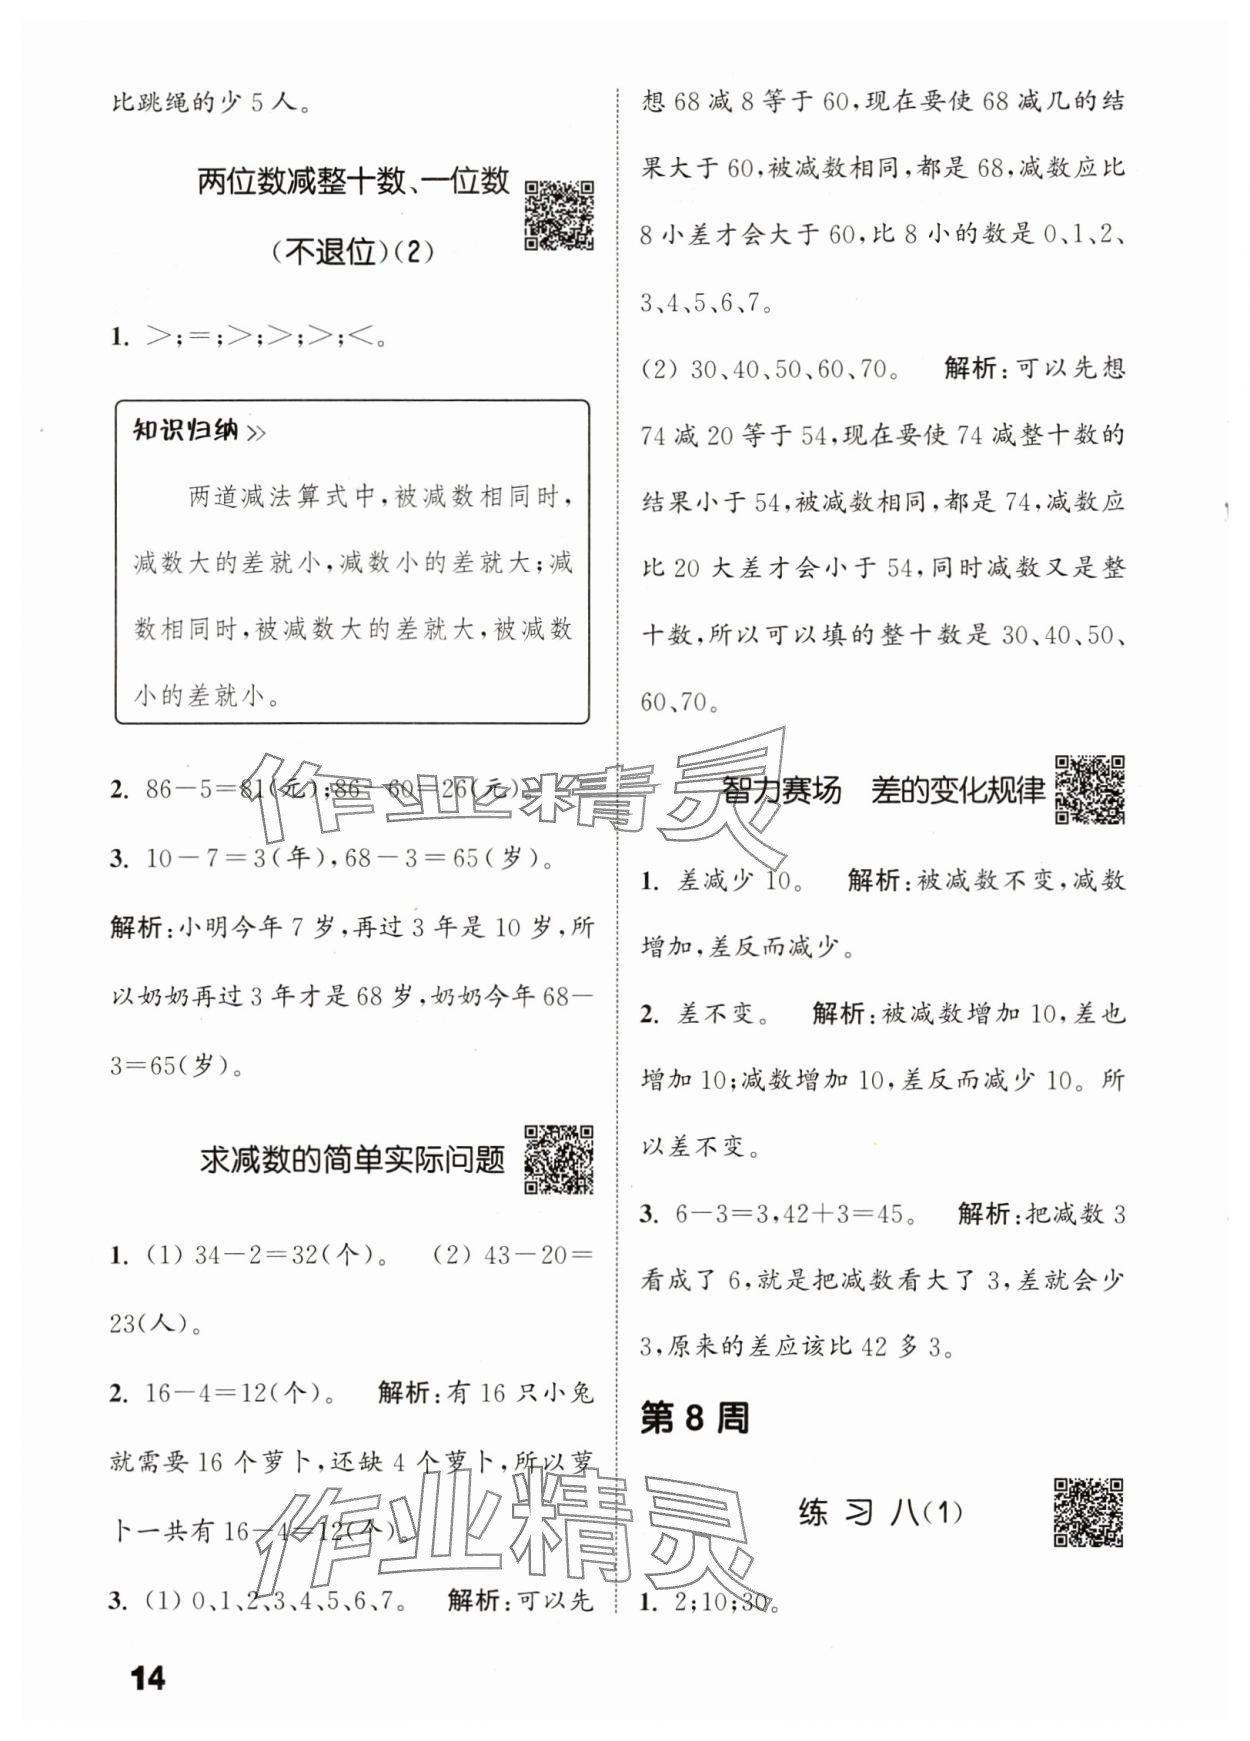 比跳绳的少5人。
两位数减整十数、一位数
(不退位)(2)
1. >;=;>;>;>;<。
知识归纳
两道减法算式中,被减数相同时,
减数大的差就小,减数小的差就大;减
数相同时,被减数大的差就大,被减数
小的差就小。
2. 86-5=81(元);86-60=26(元)。
3. 10-7=3(年),68-3=65(岁)。
解析:小明今年7岁,再过3年是10岁,所
以奶奶再过3年才是68岁,奶奶今年68-
3=65(岁)。
求减数的简单实际问题
1. (1) 34-2=32(个)。 (2) 43-20=
23(人)。
2. 16-4=12(个)。 解析:有16只小兔
就需要16个萝卜,还缺4个萝卜,所以萝
卜一共有16-4=12(个)。
3. (1) 0、1、2、3、4、5、6、7。 解析:可以先
想68减8等于60,现在要使68减几的结
果大于60,被减数相同,都是68,减数应比
8小差才会大于60,比8小的数是0、1、2、
3、4、5、6、7。
(2) 30、40、50、60、70。 解析:可以先想
74减20等于54,现在要使74减整十数的
结果小于54,被减数相同,都是74,减数应
比20大差才会小于54,同时减数又是整
十数,所以可以填的整十数是30、40、50、
60、70。
智力赛场 差的变化规律
1. 差减少10。 解析:被减数不变,减数
增加,差反而减少。
2. 差不变。 解析:被减数增加10,差也
增加10;减数增加10,差反而减少10。所
以差不变。
3. 6-3=3,42+3=45。 解析:把减数3
看成了6,就是把减数看大了3,差就会少
3,原来的差应该比42多3。
第8周
练习八(1)
1. 2;10;30。
14
作业精灵
作业精灵